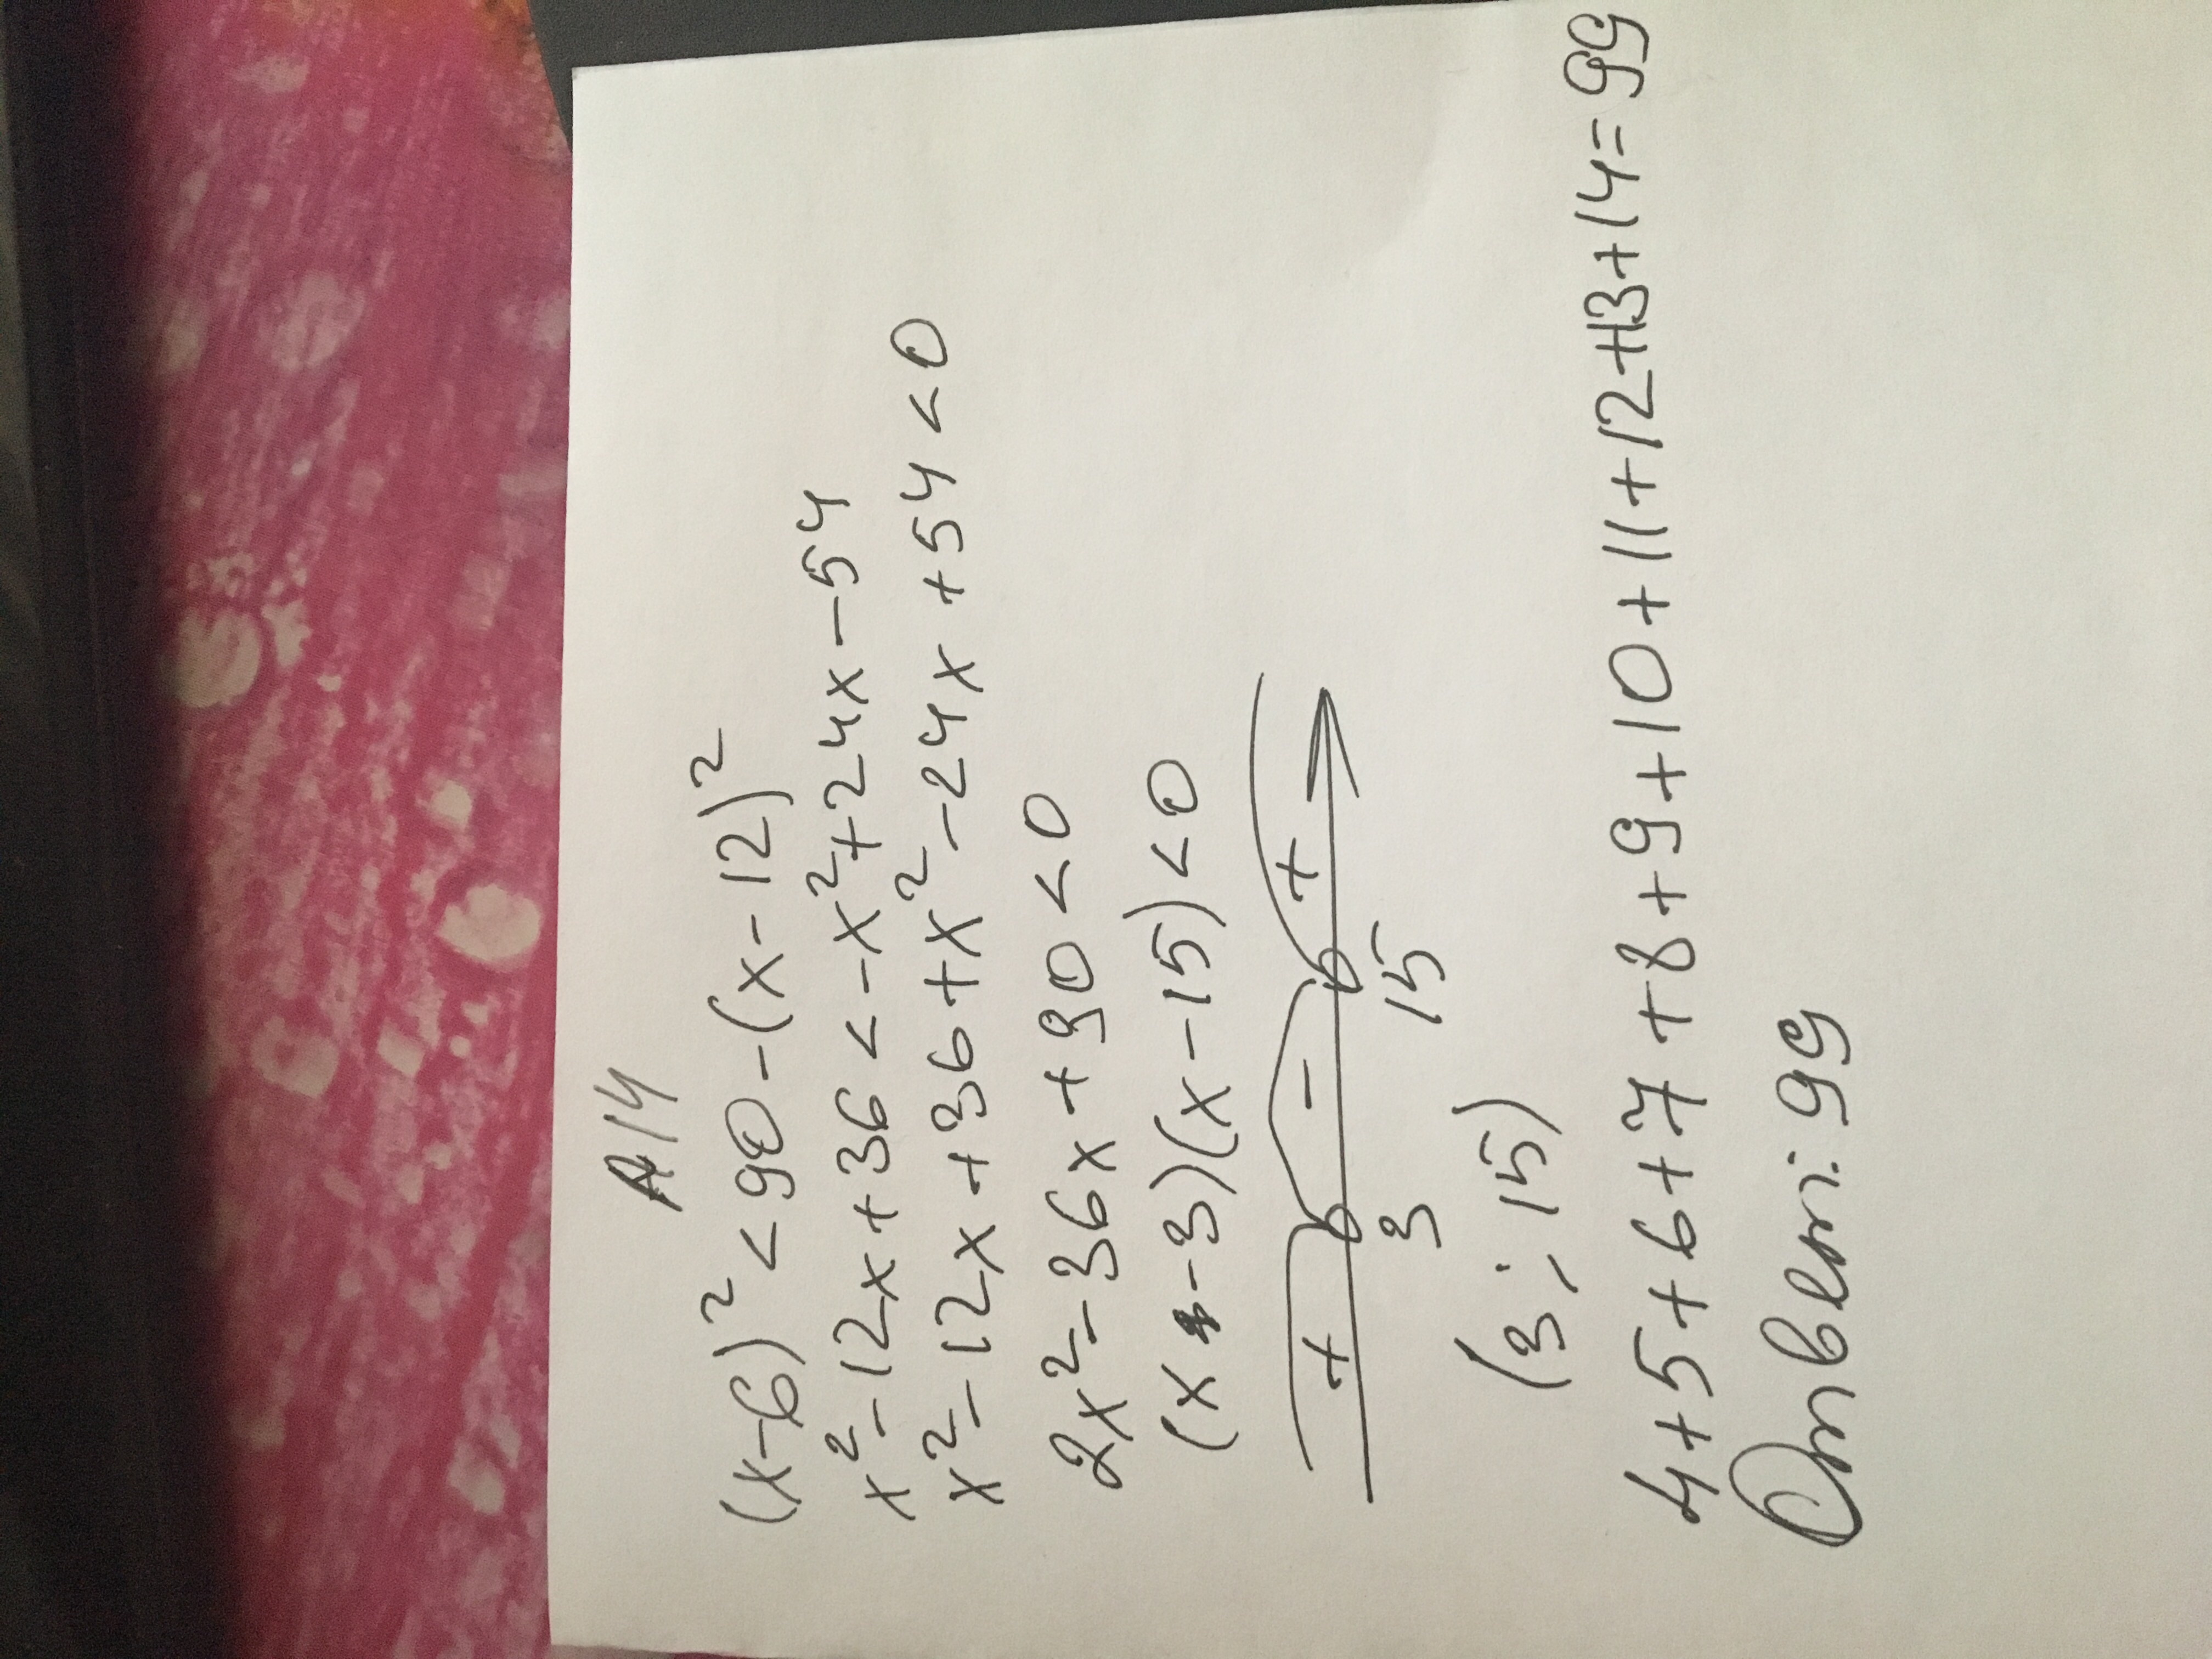 А14
(x-6)² < 90 - (x-12)²
x² - 12x + 36 < -x² + 24x - 54
x² - 12x + 36 + x² - 24x + 54 < 0
2x² - 36x + 90 < 0
(x - 3)(x - 15) < 0
+ - +
3 15
(3; 15)
4+5+6+7+8+9+10+11+12+13+14=99
Ответ: 99